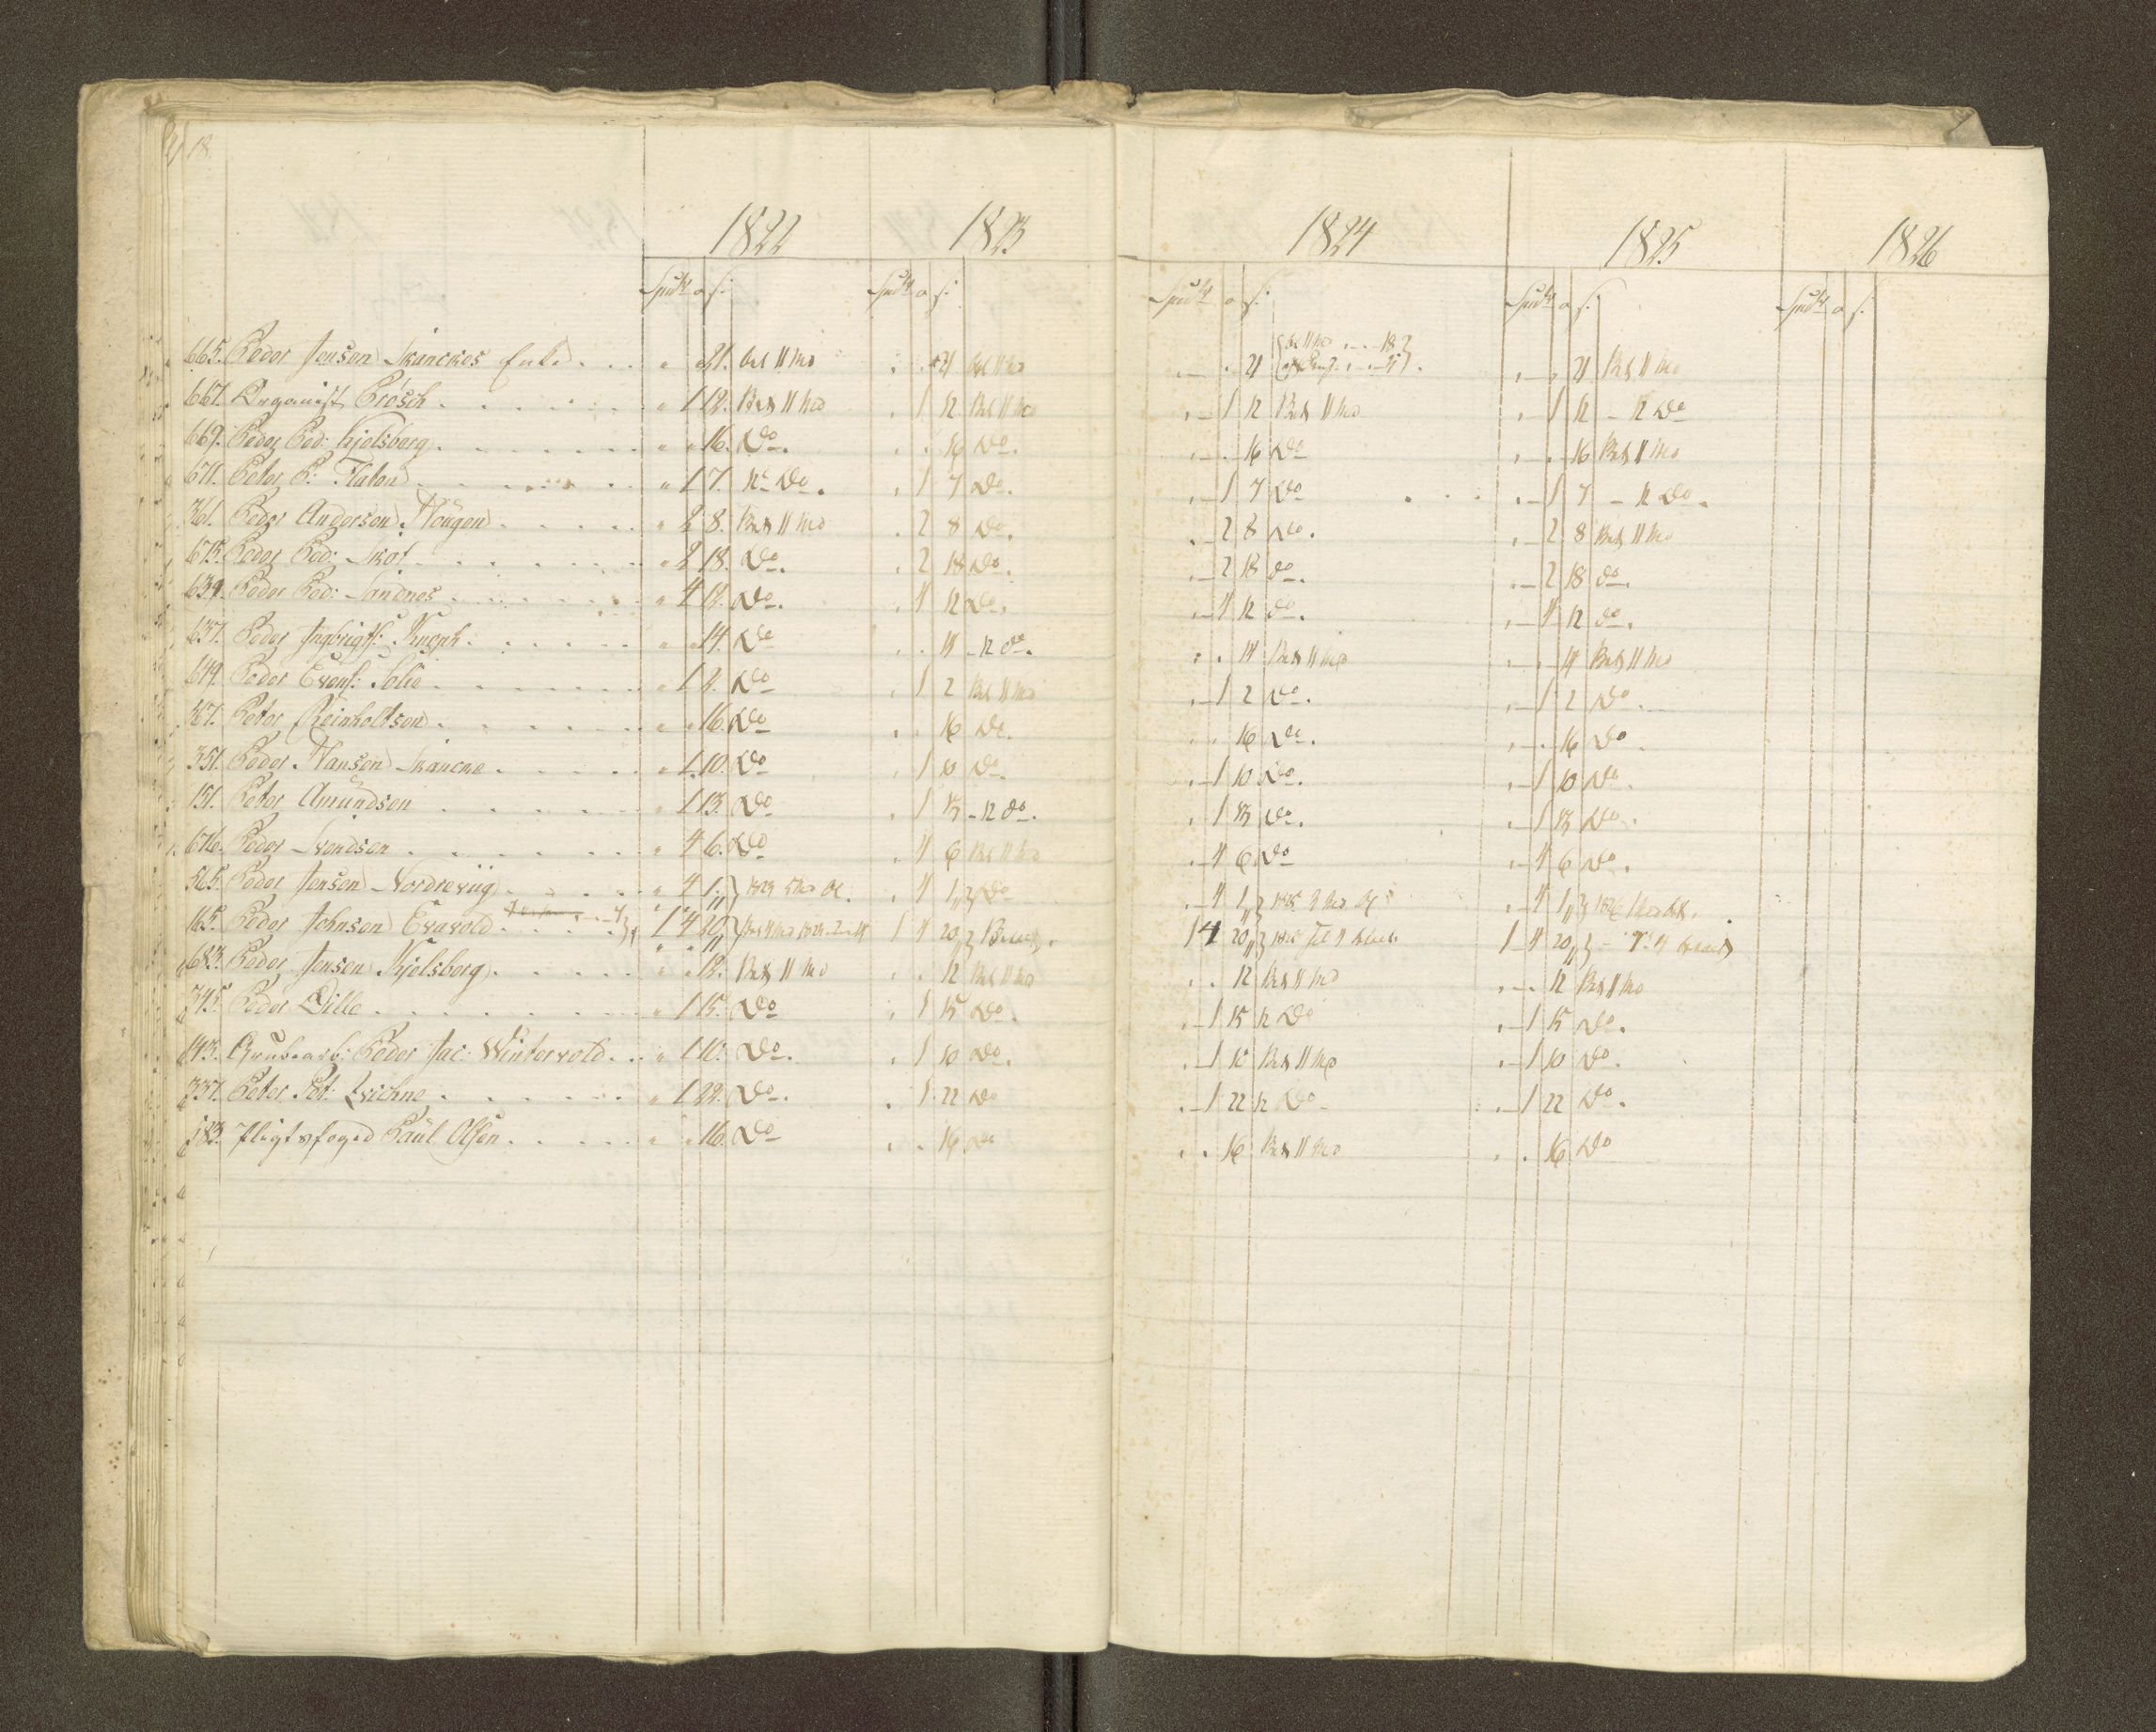 18.
1822 1823 1824 1825 1826
Spd. o s: Spd. o s: Spd. o s: Spd. o s: Spd. o s:
665. Peder Jensen Skanckes Enke . . . " " 21. Bet 11 Mo . . 21 Bet 11 Mo . . 21 Bet 11 Mo 18 . . 21 Bet 11 Mo
667. Organist Prösch . . . " 1 12. Bet 11 Mo . 1 12 Bet 11 Mo . 1 12 Bet 11 Mo . 1 12 - 12 Do
669. Peder Ped: Kjelsberg . . . " " 16. Do. . . 16 Do. . . 16 Do . . 16 Bet 11 Mo
671. Peter P: Flaten . . . " 1 7. 12 Do. . 1 7 Do. . 1 7 Do . 1 7 - 12 Do.
361. Peder Andersen Hougen . . . " 2 8. Bet 11 Mo . 2 8 Do. . 2 8 Do. . 2 8 Bet 11 Mo
675. Peder Ped: Skot . . . " 2 18. Do. . 2 18 Do. . 2 18 do. . 2 18 do.
639. Peder Ped: Sandnes . . . " 4 12. Do. . 4 12 Do. . 4 12 do. . 4 12 do.
637. Peder Ingbrigts: . . . " " 14. Do . . 14 - 12 do. . . 14 Bet 11 Mo . . 14 Bet 11 Mo
649. Peder Evens: Solie . . . " 1 2. Do . 1 2 Bet 11 Mo . 1 2 Do. . 1 2 Do.
Peter Reinholtsen . . . " " 16. Do . . 16 Do. . . 16 Do. . . 16 Do.
351. Peder Hansen Skancke . . . " 1 10. Do . 1 10 Do. . 1 10 Do. . 1 10 Do.
151. Peter Amundsen . . . " 1 13. Do . 1 13 - 12 do. . 1 13 Do. . 1 13 Do.
676. Peder Svendsen . . . " 4 6. Do . 4 6 Bet 11 Mo . 4 6 Do . 4 6 Do.
565. Peder Jensen Nordreviig . . . " 4 1. } 1823 5 Mo . 4 1 } Do . 4 1 } 1825 Mo . 4 1 } 1826
165. Peder Johnsen Evavold . . . 1 4 20. } Bet 11 Mo 1 4 20 } 1 4 20 } 1825 1 4 20 }
683. Peder Jensen Kjelsberg . . . " " 12. Bet 11 Mo . . 12 Bet 11 Mo . . 12 Bet 11 Mo . . 12 Bet 11 Mo
345. Peder Dille . . . " 1 15. Do . 1 15 Do. . 1 15 12 Do . 1 15 Do.
143. Grubearb: Peder Jac: Wintervold . . " 1 10. Do. . 1 10 Do. . 1 10 Bet 11 Mo . 1 10 Do.
337. Peter Pet: . . . " 1 22. Do. . 1 22 Do . 1 22 12 Do . 1 22 Do.
183. Poul Olsen . . . " " 16. Do . . 16 Do . . 16 Bet 11 Mo . . 16 Do